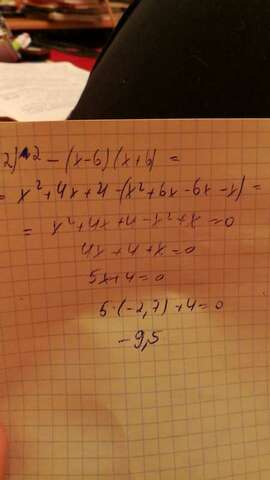 2)^2 - (x-9)(x+9) =
= x²+4x+4-(x²+x9-9x-x) =
= x²+4x+4-x²+x=0
4x+4+x=0
5x+4=0
5·(-2,7)+4=0
-9,5